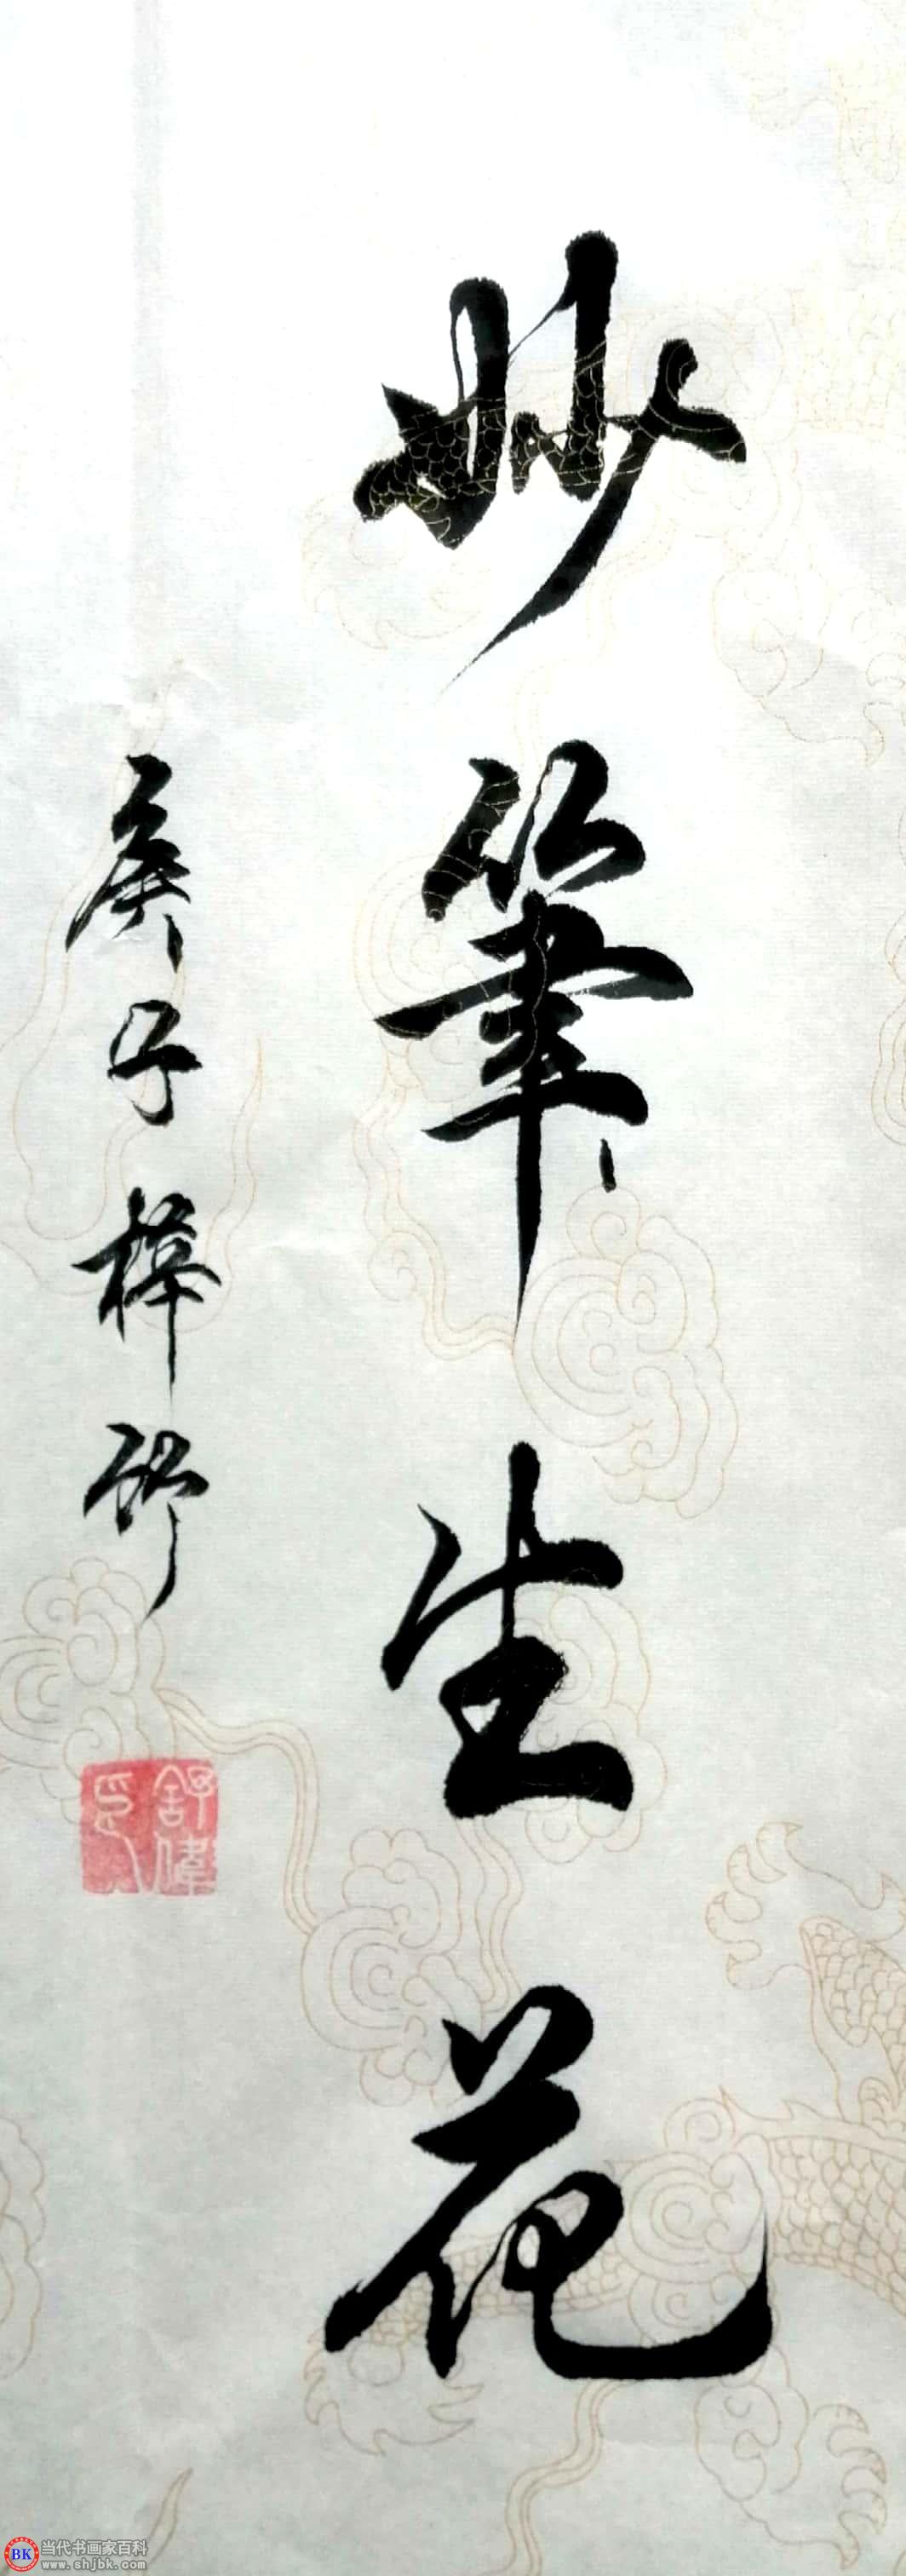 妙筆生花
庚子梓竹
舒偉印
BK 当代书画家百科
www.shjbk.com